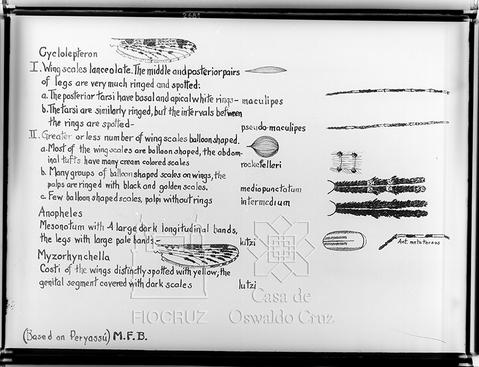 Cyclolepteron
I. Wing scales lanceolate. The middle and posterior pairs
of legs are very much ringed and spotted:
a. The posterior tarsi have basal and apical white rings- maculipes
b. The tarsi are similarly ringed, but the intervals between
the rings are spotted- pseudo-maculipes
II. Greater or less number of wing scales balloon shaped.
a. Most of the wing scales are balloon shaped, the abdom-
inal-tufts have many cream colored scales rockefelleri
b. Many groups of balloon shaped scales on wings, the
palps are ringed with black and golden scales. mediopunctatum
c. Few balloon shaped scales, palpi without rings intermedium
Anopheles
Mesonotum with 4 large dark longitudinal bands,
the legs with large pale bands- lutzi
Ant. metatarsus
Myzorhynchella
Costi of the wings distinctly spotted with yellow, the
genital segment covered with dark scales lutzi
FIOCRUZ
Casa de
Oswaldo Cruz
(Based on Peryassú) M.F.B.